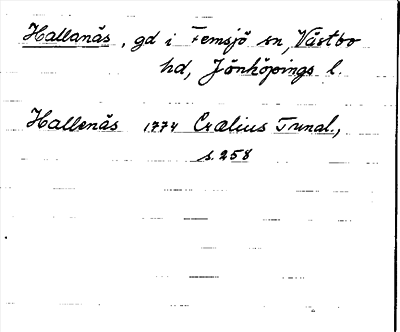 Hallanäs, gd i Femsjö sn, Västbo
hd, Jönköpings l.
Hallenäs 1774 Crælius Tunal.,
s. 258